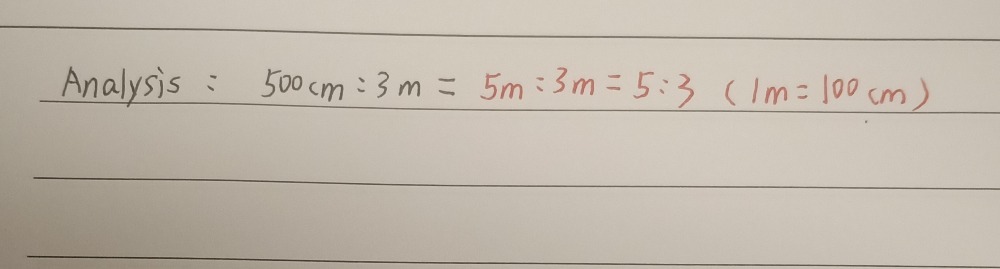 Analysis : 500cm : 3m = 5m : 3m = 5 : 3 (1m = 100cm)